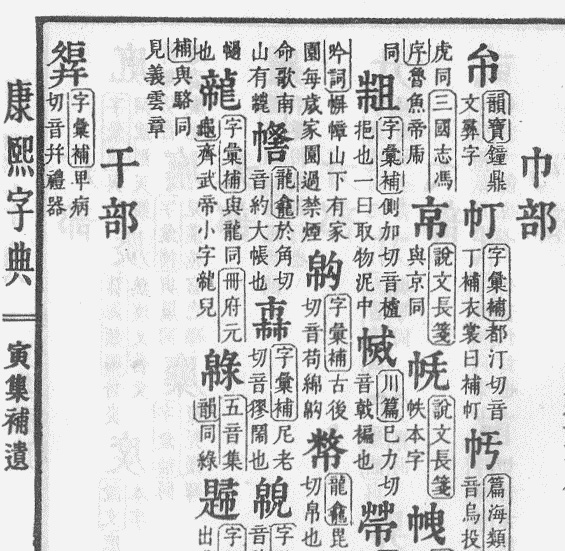 巾部
韻寶鐘鼎
文彝字
帄
字彙補都汀切音
丁補衣裳曰補帄
篇海類
音烏投
虎同三國志馮
序魯魚帝
說文長箋
與京同
說文長箋
帙本字
同
字彙補側加切音樝
抯也一曰取物泥中
川篇巴力切
音㦸褊也
吟詞幈幛山下有家
園每荿家園過禁煙
字彙補古後
切音苟綿
幣
龍龕毘
切帛也
命歌南
山有龓
龍龕於角切
音約大帳也
字彙補尼老
切音獿鬧也
字
音
也
龍
字彙補與龍同冊府元
龜齊武帝小字龍兒
五音集
韻同綠
字
出
補與駱同
見義雲章
干部
字彙補甲病
切音幷禮器
康熙字典
寅集補遺